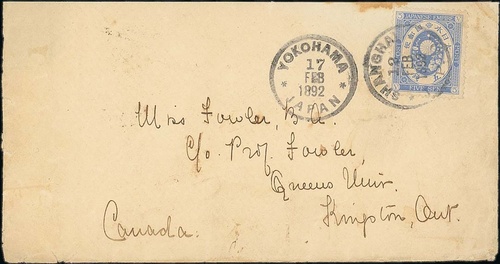 YOKOHAMA
17
FEB
1892
JAPAN
SHANGHAI
12
FEB
JAPANESE EMPIRE
FIVE SEN
Miss Fowler, B.A.
C/o Prof. Fowler,
Queens Univ.
Kingston, Ont.
Canada.